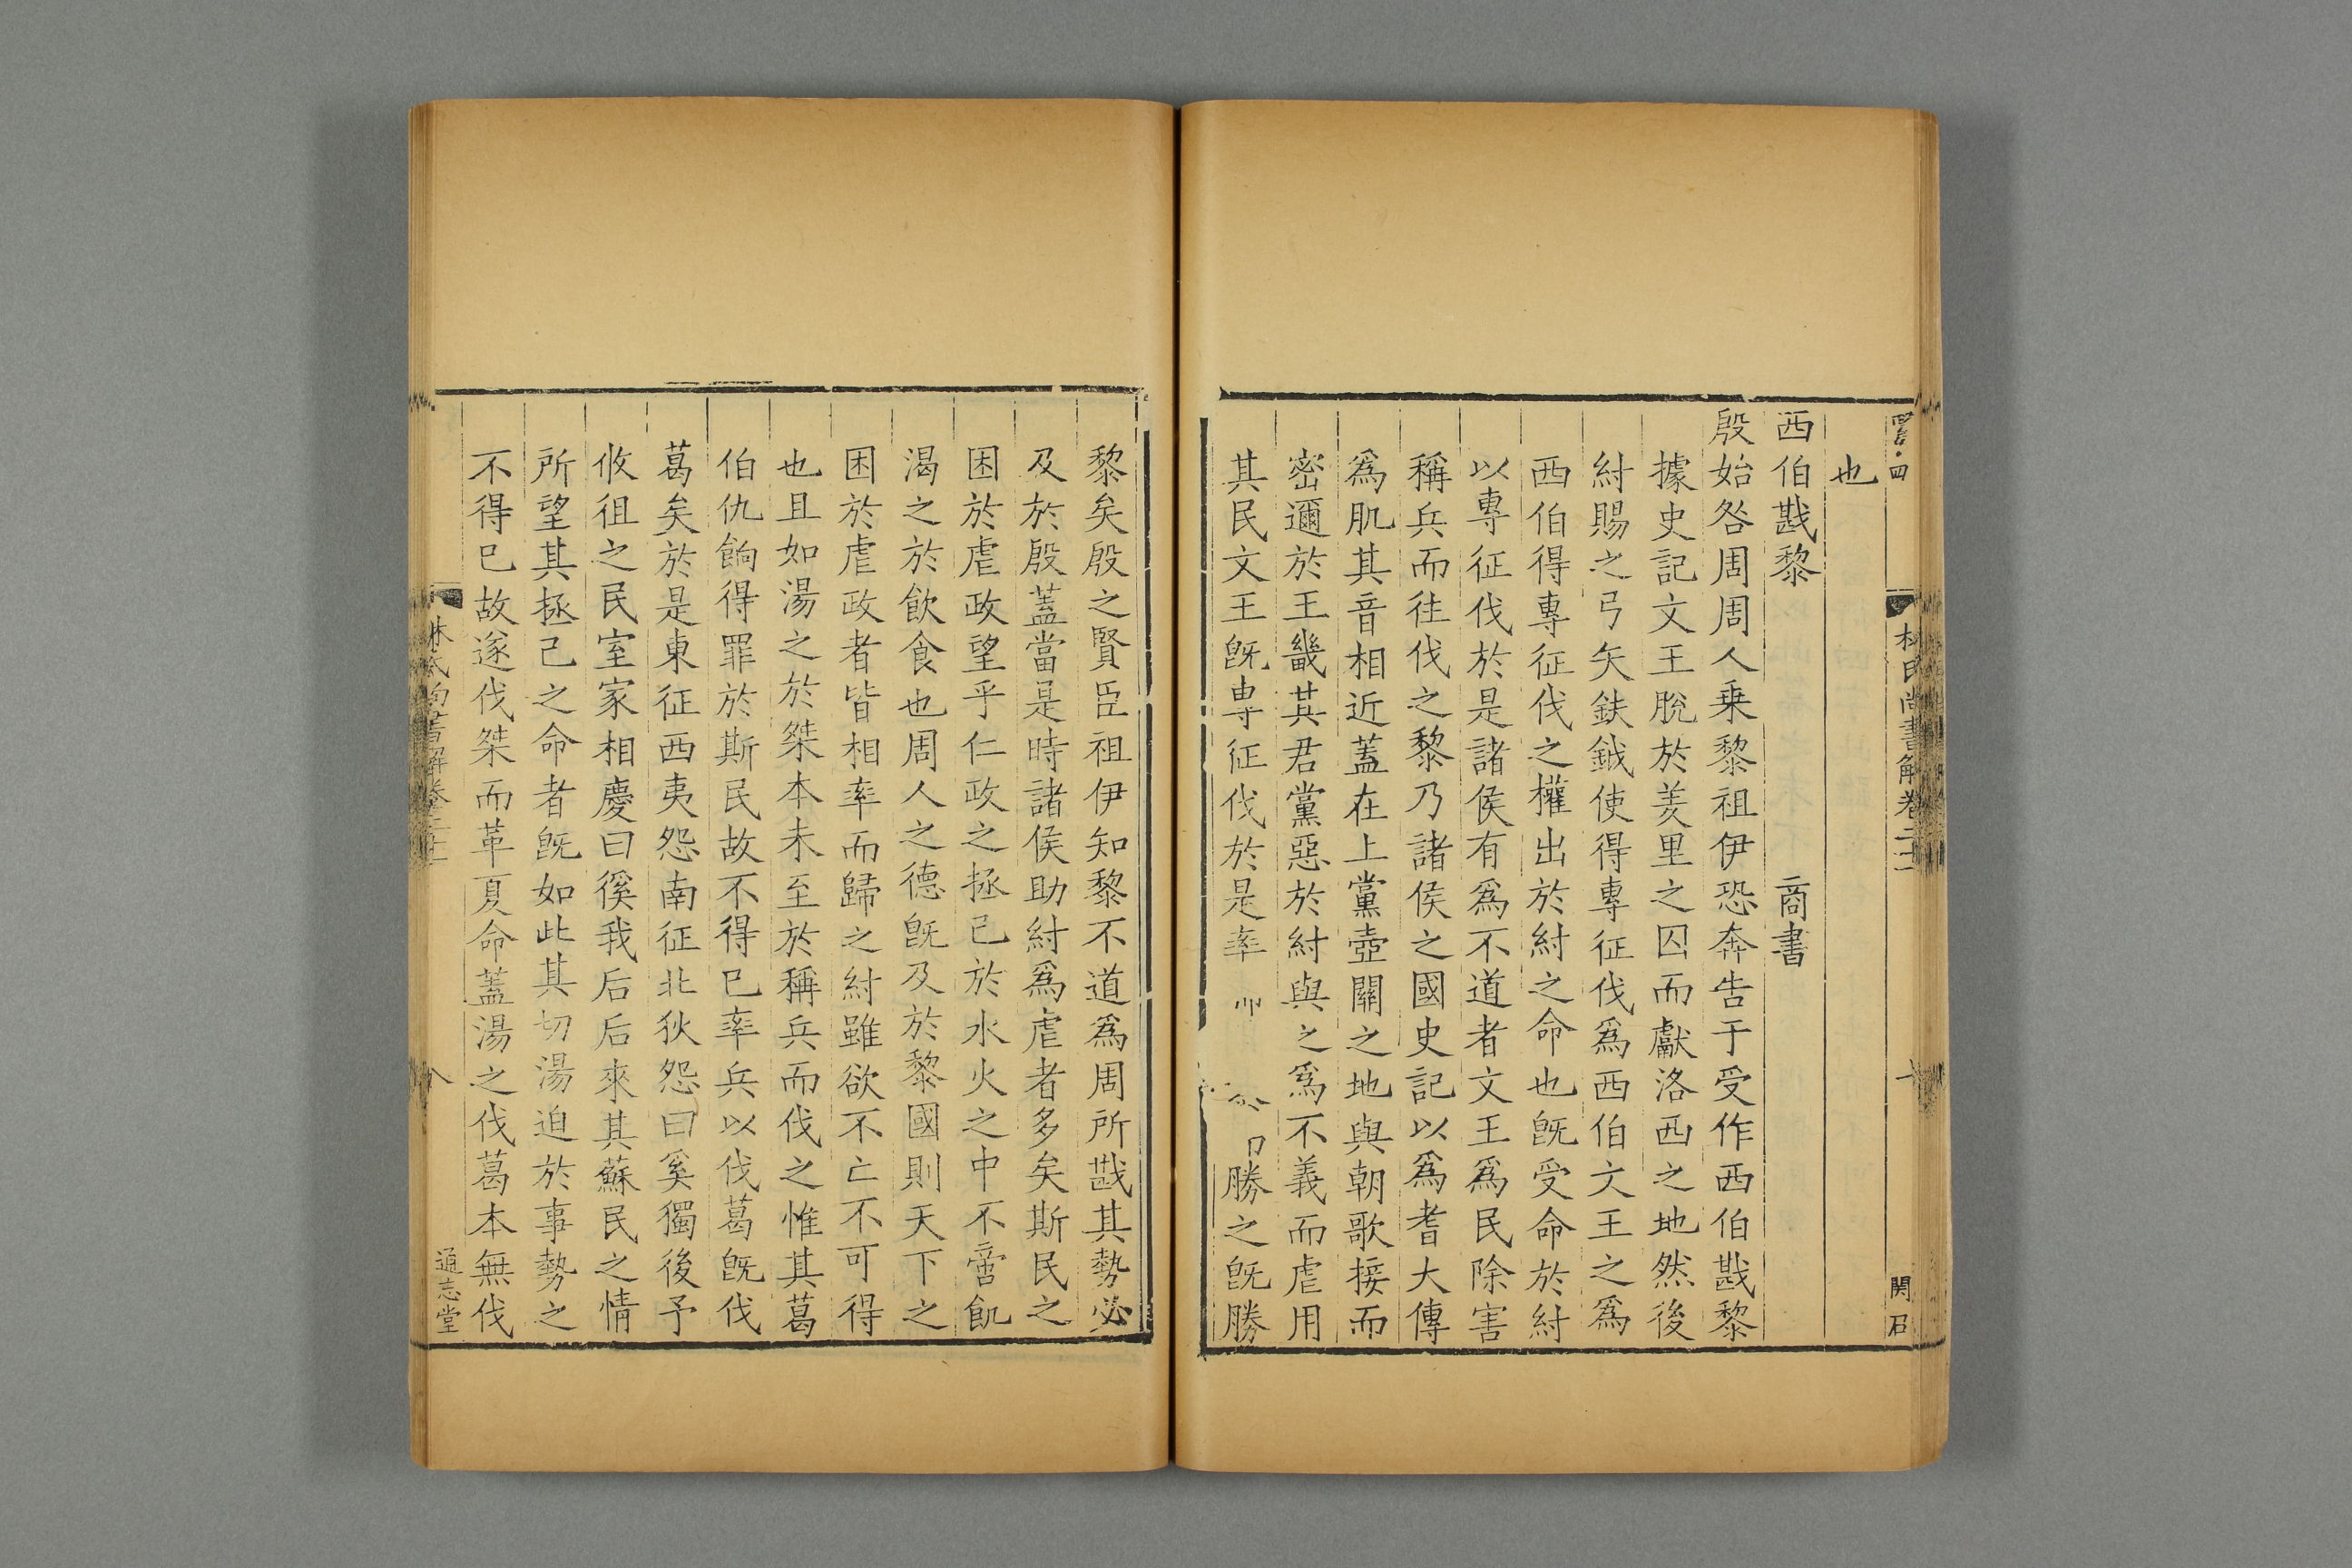 也
西伯戡黎　商書
殷始咎周周人乗黎祖伊恐奔告于受作西伯戡黎
據史記文王脫於羑里之囚而獻洛西之地然後
紂賜之弓矢鈇鉞使得專征伐爲西伯文王之爲
西伯得專征伐之權出於紂之命也旣受命於紂
以專征伐於是諸侯有爲不道者文王爲民除害
稱兵而往伐之黎乃諸侯之國史記以爲耆大傳
爲肌其音相近蓋在上黨壺關之地與朝歌接而
密邇於王畿其君黨惡於紂與之爲不義而虐用
其民文王旣専征伐於是率勝之旣勝
林氏尚書解卷二十
黎矣殷之賢臣祖伊知黎不道爲周所戡其勢必
及於殷蓋當是時諸侯助紂爲虐者多矣斯民之
困於虐政望乎仁政之拯己於水火之中不啻飢
渴之於飲食也周人之德旣及於黎國則天下之
困於虐政者皆相率而歸之紂雖欲不亡不可得
也且如湯之於桀本未至於稱兵而伐之惟其葛
伯仇餉得罪於斯民故不得已率兵以伐葛旣伐
葛矣於是東征西夷怨南征北狄怨曰奚獨後予
攸徂之民室家相慶曰徯我后后來其蘇民之情
所望其拯己之命者旣如此其切湯迫於事勢之
不得已故遂伐桀而革夏命蓋湯之伐葛本無伐
林氏尚書解卷二十
八
通志堂